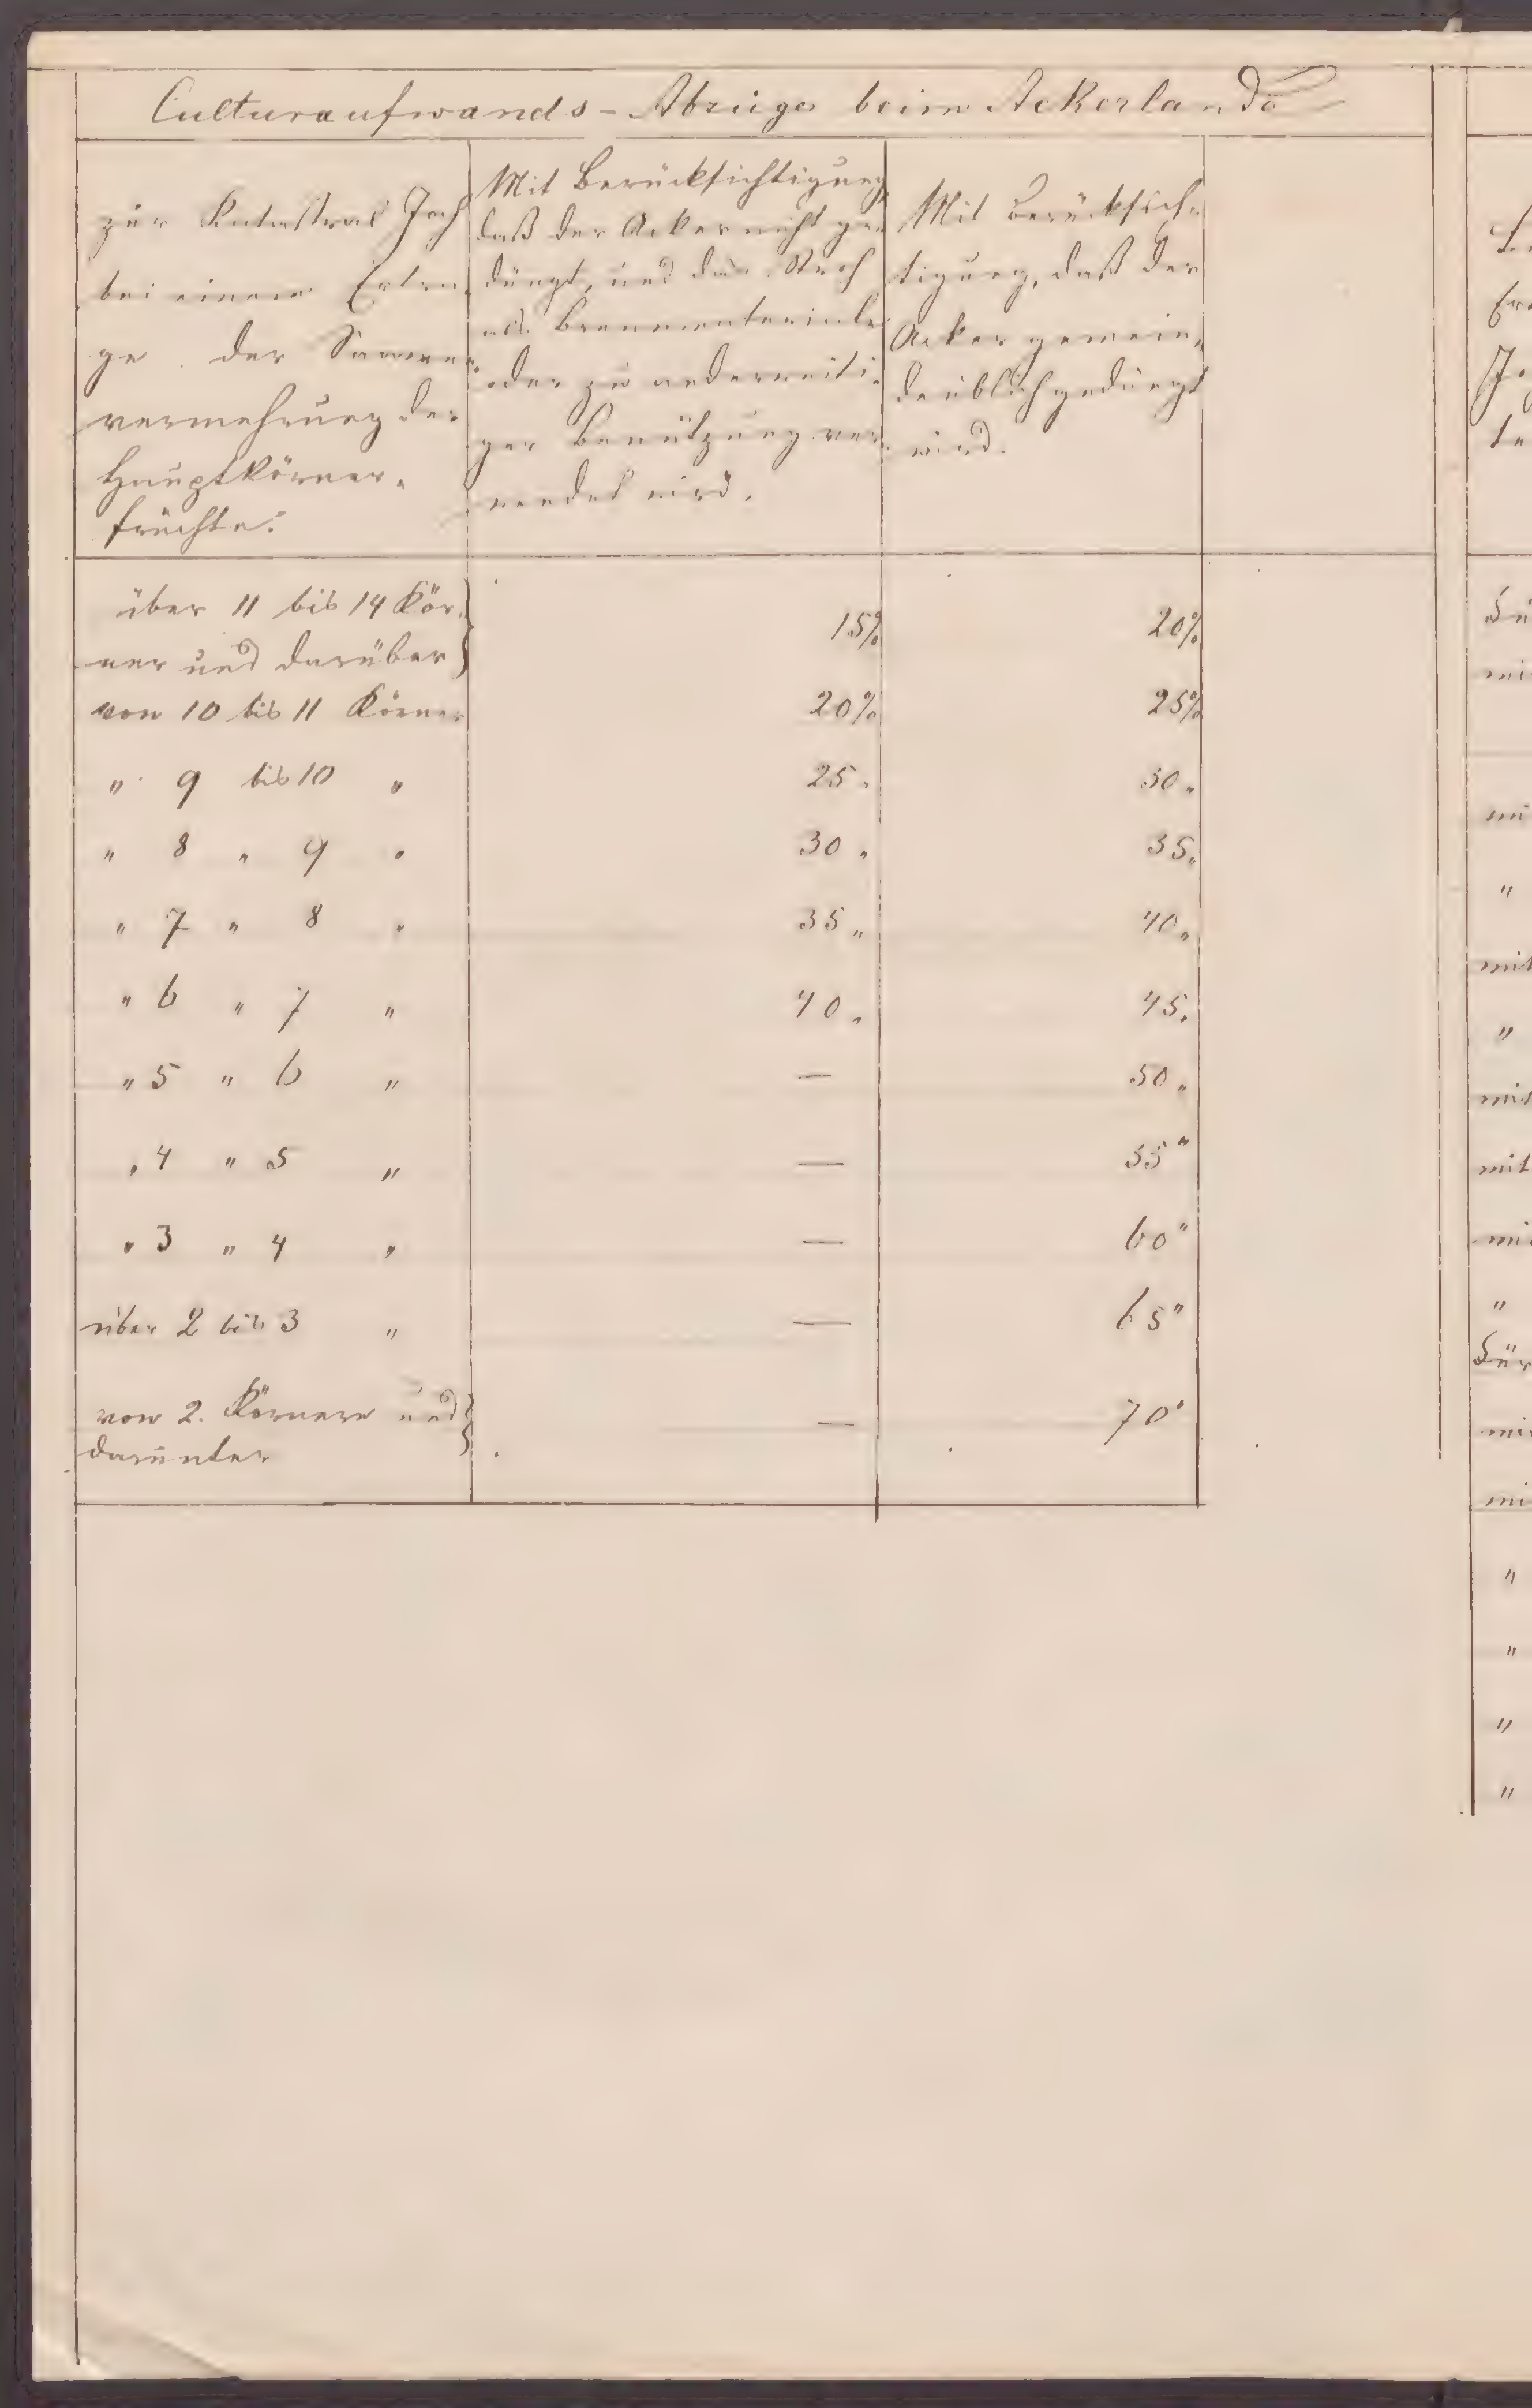 Culturaufwands-Abzüge beim Ackerlande
zur Katastral Joch
bei einem Ertra-
ge der Saamen-
vermehrung der
Hauptkörner-
früchte:
Mit Berücksichtigung
daß der Acker nicht ge-
düngt, und das Stroh
als Brennmateriale
oder zu anderweiti-
ger Benützung ver-
wendet wird.
Mit Berücksich-
tigung, daß der
Acker gemein-
deüblich gedüngt
wird.
über 11 bis 14 Kör- 15% 20%
ner und darüber
von 10 bis 11 Körner 20% 25%
" 9 bis 10 " 25 " 30 "
" 8 " 9 " 30 " 35 "
" 7 " 8 " 35 " 40 "
" 6 " 7 " 40 " 45 "
" 5 " 6 " — 50 "
" 4 " 5 " — 55 "
" 3 " 4 " — 60 "
über 2 bis 3 " — 65 "
von 2. Körnern und — 70 "
darunter
mi
mi
"
mit
"
mit
mit
mi
"
Für
mi
mi
"
"
"
"